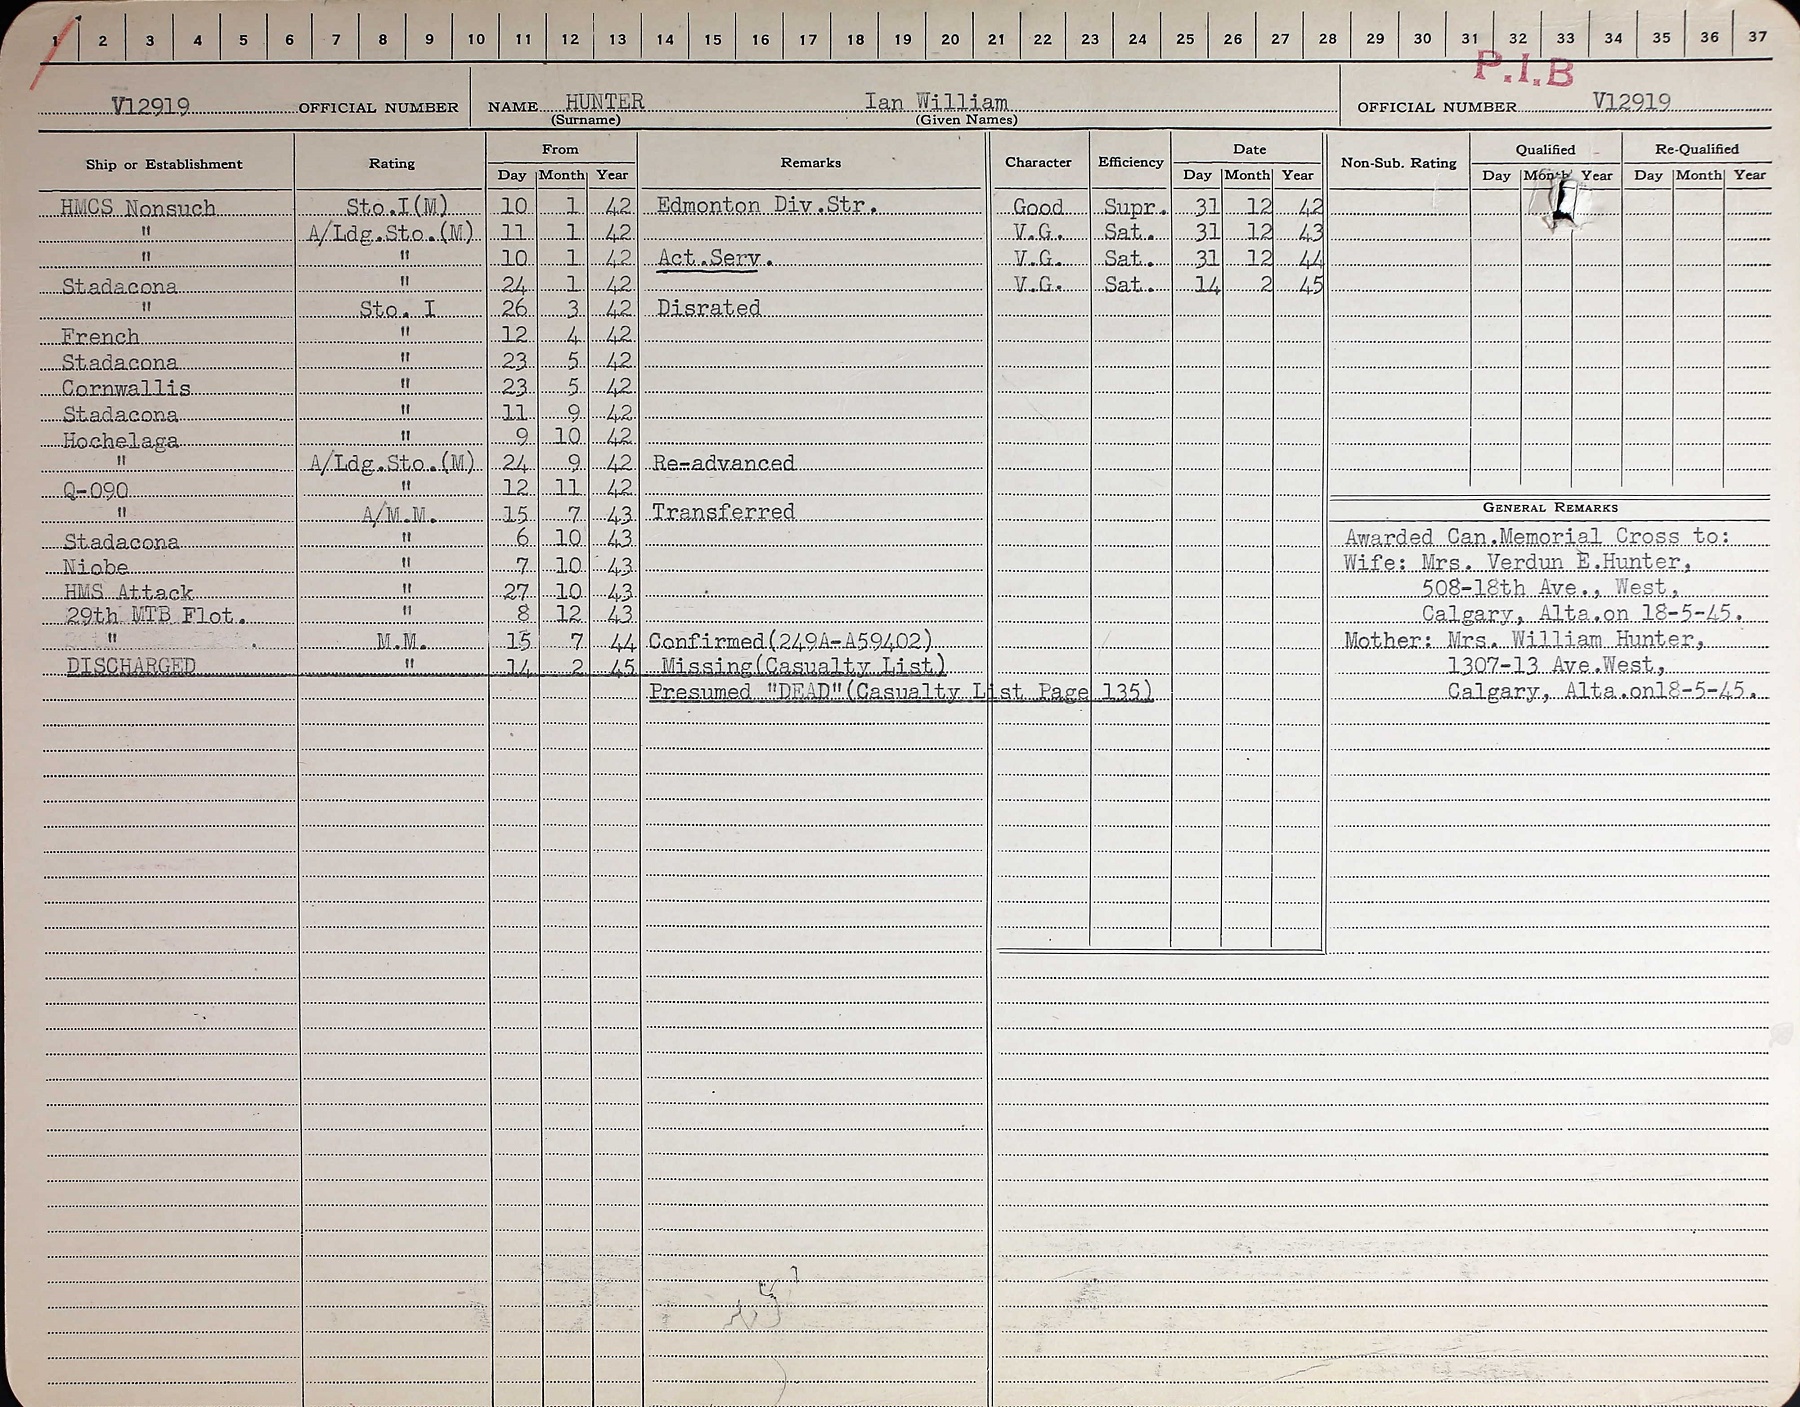 1 2 3 4 5 6 7 8 9 10 11 12 13 14 15 16 17 18 19 20 21 22 23 24 25 26 27 28 29 30 31 32 33 34 35 36 37
P.I.B
V12919 OFFICIAL NUMBER NAME HUNTER Ian William OFFICIAL NUMBER V12919
(Surname) (Given Names)
Ship or Establishment Rating From Remarks Character Efficiency Date Non-Sub. Rating Qualified Re-Qualified
Day Month Year Day Month Year Day Month Year Day Month Year
HMCS Nonsuch Sto.I(M) 10 1 42 Edmonton Div.Str. Good Supr. 31 12 42
" A/Ldg.Sto.(M) 11 1 42 V.G. Sat. 31 12 43
" " 10 1 42 Act.Serv. V.G. Sat. 31 12 44
Stadacona " 24 1 42 V.G. Sat. 14 2 45
" Sto. I 26 3 42 Disrated
French " 12 4 42
Stadacona " 23 5 42
Cornwallis " 23 5 42
Stadacona " 11 9 42
Hochelaga " 9 10 42
" A/Ldg.Sto.(M) 24 9 42 Re-advanced
Q-090 " 12 11 42
" A/M.M. 15 7 43 Transferred
Stadacona " 6 10 43
Niobe " 7 10 43
HMS Attack " 27 10 43
29th MTB Flot. " 8 12 43
" M.M. 15 7 44 Confirmed(249A-A59402)
DISCHARGED " 14 2 45 Missing(Casualty List)
Presumed "DEAD"(Casualty List Page 135)
GENERAL REMARKS
Awarded Can.Memorial Cross to:
Wife: Mrs. Verdun E.Hunter,
508-18th Ave., West,
Calgary, Alta.on 18-5-45.
Mother: Mrs. William Hunter,
1307-13 Ave.West,
Calgary, Alta.on18-5-45.